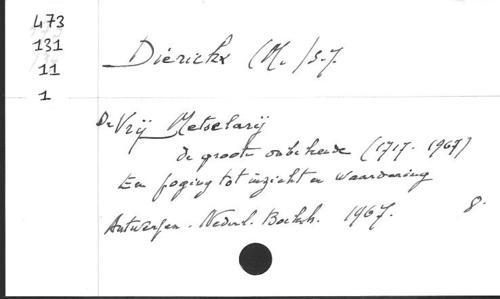 473
131
11
1
Dierickx (M.) s.j.
De Vrij Metselarij
de groote onbekende (1717-1967)
Een poging tot inzicht en waardering
Antwerpen. Nederl. Boekh. 1967. 8.